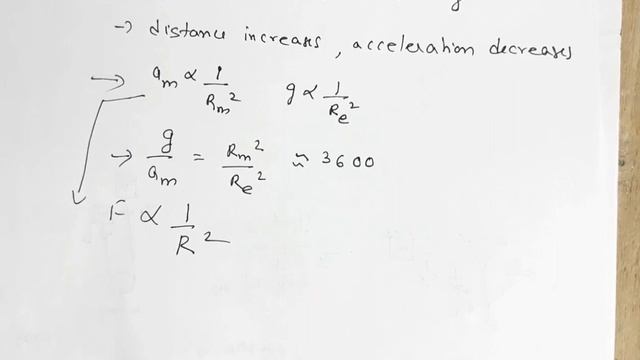 → distance increases, acceleration decreases
→ a_m ∝ 1/R_m² g ∝ 1/R_e²
→ g/a_m = R_m²/R_e² ≈ 3600
F ∝ 1/R²